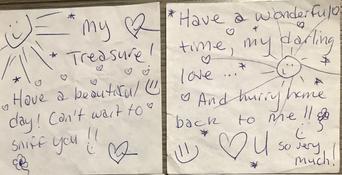 My
Treasure!
Have a beautiful
day! Can't wait to
sniff you!!
Have a wonderful
time, my darling
love...
And hurry home
back to me!!
U so very
much!